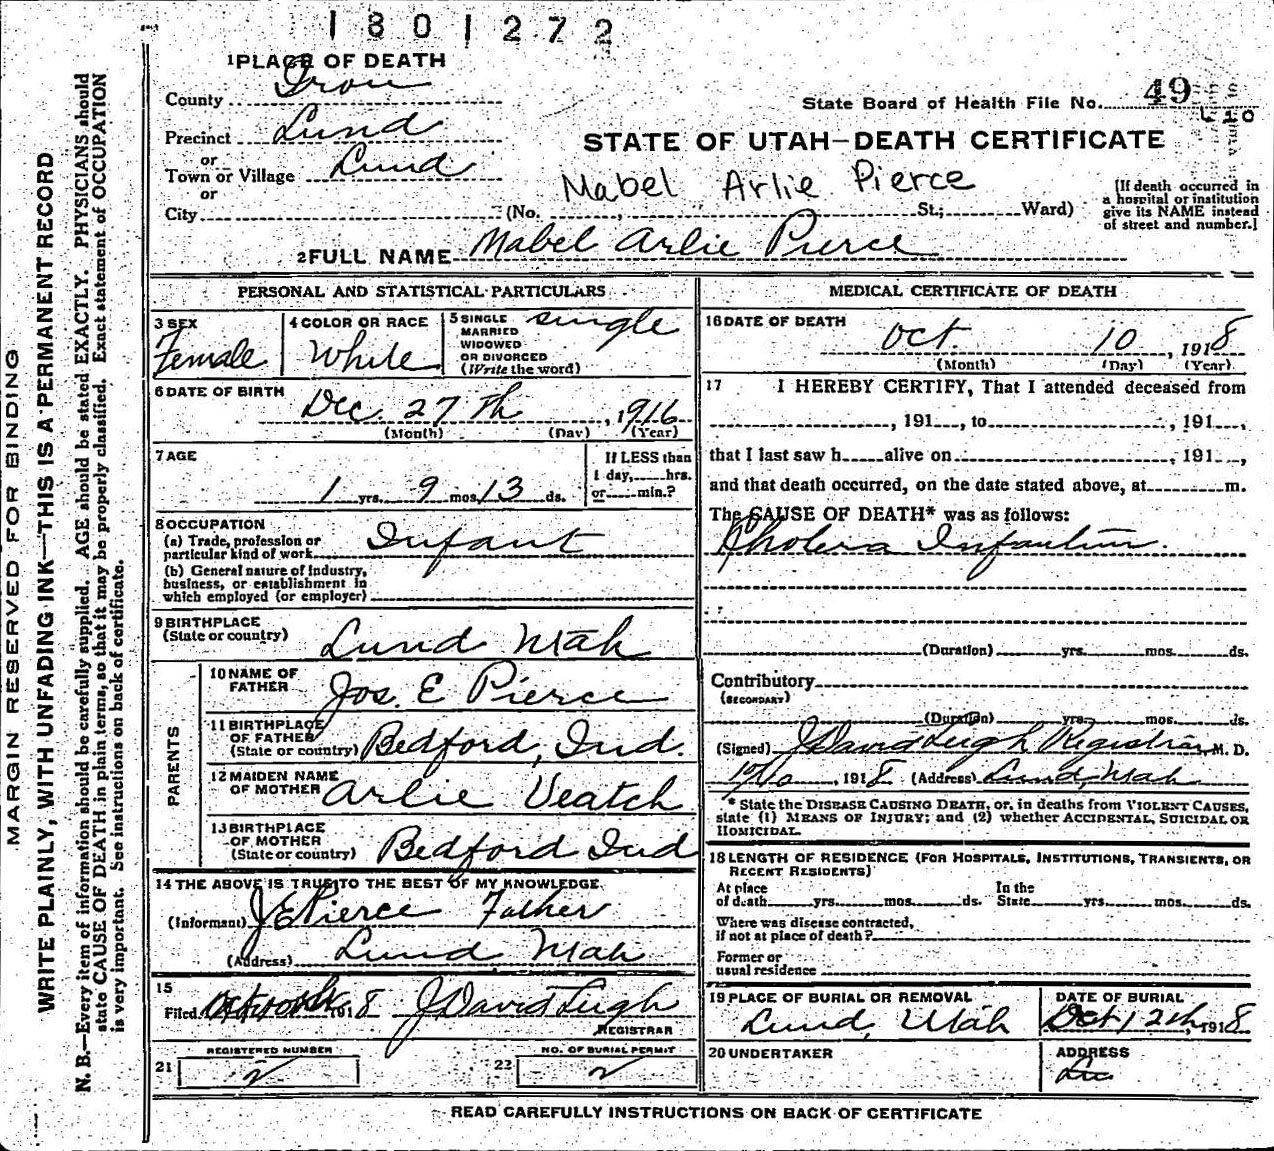 1801272
1 PLACE OF DEATH
County Iron
State Board of Health File No. 49
Precinct Lund
STATE OF UTAH—DEATH CERTIFICATE
or
Town or Village Lund
Mabel Arlie Pierce
or
City (No. , St.; Ward)
[If death occurred in
a hospital or institution
give its NAME instead
of street and number.]
2 FULL NAME Mabel Arlie Pierce
PERSONAL AND STATISTICAL PARTICULARS
3 SEX Female
4 COLOR OR RACE White
5 SINGLE MARRIED WIDOWED OR DIVORCED (Write the word) single
6 DATE OF BIRTH Dec. 27 Th, 1916
(Month) (Day) (Year)
7 AGE
1 yrs. 9 mos. 13 ds.
If LESS than
1 day, hrs.
or min.?
8 OCCUPATION
(a) Trade, profession or
particular kind of work Infant
(b) General nature of industry,
business, or establishment in
which employed (or employer)
9 BIRTHPLACE
(State or country) Lund Utah
PARENTS
10 NAME OF
FATHER Jos. E Pierce
11 BIRTHPLACE
OF FATHER
(State or country) Bedford, Ind.
12 MAIDEN NAME
OF MOTHER Arlie Veatch
13 BIRTHPLACE
OF MOTHER
(State or country) Bedford Ind
14 THE ABOVE IS TRUE TO THE BEST OF MY KNOWLEDGE
(Informant) J E Pierce Father
(Address) Lund Utah
15
Filed 1918 J David Leigh
REGISTRAR
REGISTERED NUMBER
21 2
NO. OF BURIAL PERMIT
22 2
MEDICAL CERTIFICATE OF DEATH
16 DATE OF DEATH
Oct. 10, 1918
(Month) (Day) (Year)
17 I HEREBY CERTIFY, That I attended deceased from
, 191 , to , 191 ,
that I last saw h alive on , 191 ,
and that death occurred, on the date stated above, at m.
The CAUSE OF DEATH* was as follows:
Cholera Infantum.
(Duration) yrs. mos. ds.
Contributory
(SECONDARY)
(Duration) yrs. mos. ds.
(Signed) J David Leigh Registrar, M. D.
10/10, 1918 (Address) Lund, Utah
* State the DISEASE CAUSING DEATH, or, in deaths from VIOLENT CAUSES,
state (1) MEANS OF INJURY; and (2) whether ACCIDENTAL, SUICIDAL OR
HOMICIDAL.
18 LENGTH OF RESIDENCE (FOR HOSPITALS, INSTITUTIONS, TRANSIENTS, OR
RECENT RESIDENTS)
At place In the
of death yrs. mos. ds. State yrs. mos. ds.
Where was disease contracted,
if not at place of death?
Former or
usual residence
19 PLACE OF BURIAL OR REMOVAL
Lund, Utah
DATE OF BURIAL
Oct 12th, 1918
20 UNDERTAKER
ADDRESS
READ CAREFULLY INSTRUCTIONS ON BACK OF CERTIFICATE
MARGIN RESERVED FOR BINDING
WRITE PLAINLY, WITH UNFADING INK—THIS IS A PERMANENT RECORD
N. B.—Every item of information should be carefully supplied. AGE should be stated EXACTLY. PHYSICIANS should
state CAUSE OF DEATH in plain terms, so that it may be properly classified. Exact statement of OCCUPATION
is very important. See instructions on back of certificate.